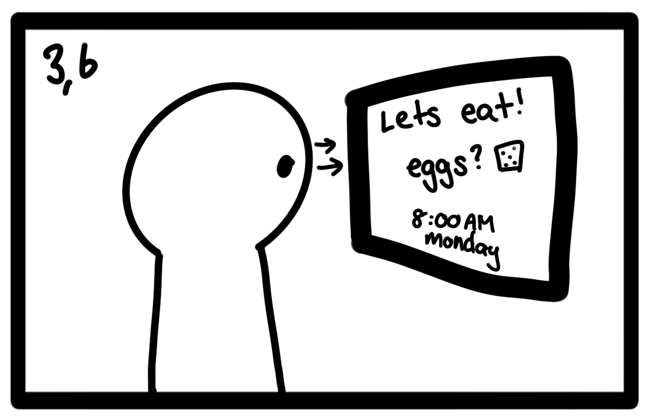 3,6
Lets eat!
eggs?
8:00 AM
monday